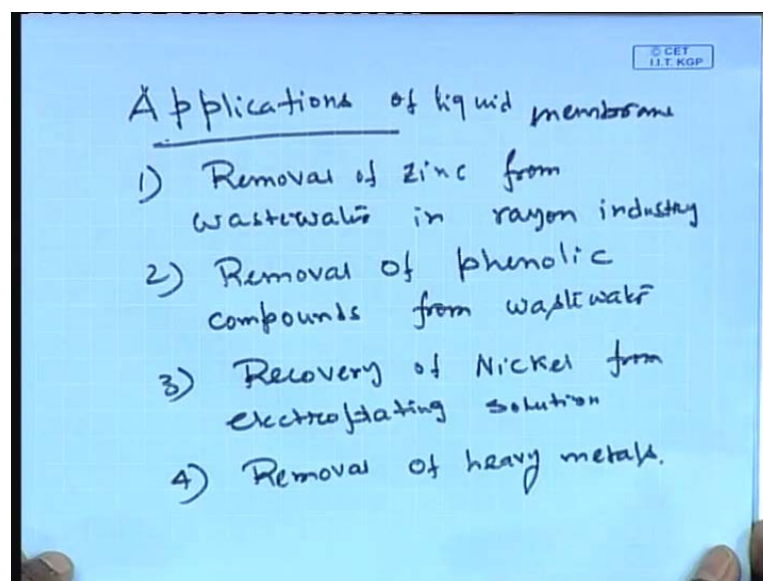 © CET
I.I.T. KGP
Applications of liquid membrane
1) Removal of zinc from
wastewater in rayon industry
2) Removal of phenolic
compounds from wastewater
3) Recovery of Nickel from
electroplating solution
4) Removal of heavy metals.